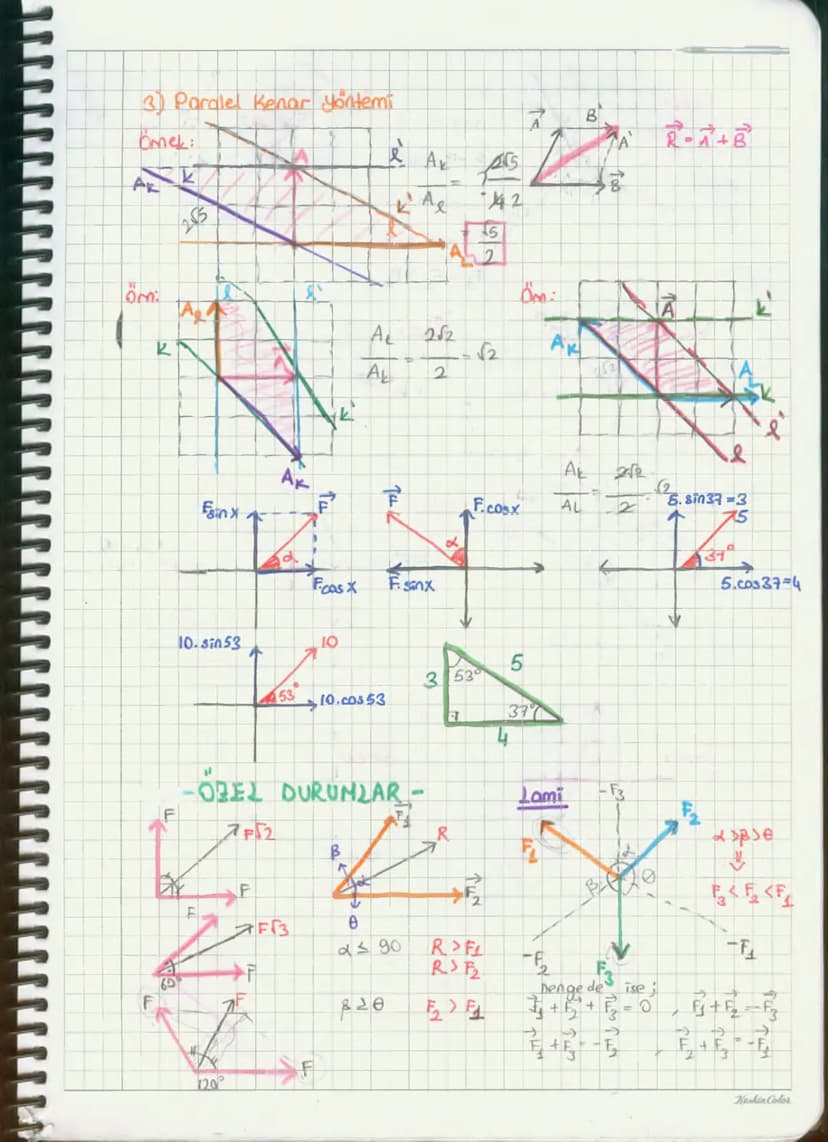 3) Paralel Kenar Yöntemi
Örnek:
K
l'
K'
l
A_K
A_L
2√5
A_K/A_l = 2√5/4 2
= √5/2
A
B'
A'
B
R = A + B
Örn:
A_l
l
l'
K
K'
A
A_K
A_L/A_K = 2√2/2 = √2
Örn:
A
K'
A_K
2√2
A_L
K
l'
l
A_K/A_L = 2√2/2 = √2
F.sinx
F
α
F.cosx
F
F.cosx
α
F.sinx
5.sin37=3
5
37°
5.cos37=4
10.sin53
10
53°
10.cos53
3
53°
5
37°
4
- ÖZEL DURUMLAR -
F
F√2
F
F
F√3
60°
F
F
F
120°
F
F₁
R
β
α
θ
F₂
α ≤ 90
R > F₁
R > F₂
β ≥ θ
F₂ > F₁
Lami
-F₃
F₁
F₂
α
β
θ
-F₂
F₃
-F₁
α>β>θ
⇓
F₃ < F₂ < F₁
Dengede ise;
F₁ + F₂ + F₃ = 0 , F₁ + F₂ = -F₃
F₁ + F₃ = -F₂ , F₂ + F₃ = -F₁
KeskinColor